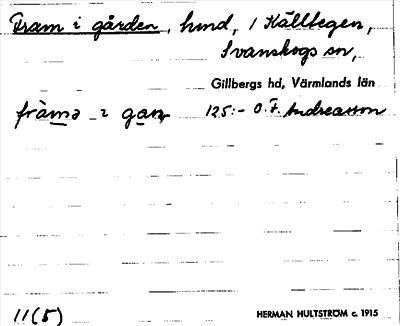 Fram i gården, hmd, i Källtegen,
Svanskogs sn,
Gillbergs hd, Värmlands län
fràmə 2 gaɳ 125:- O.F. Andreasson
11(5)
HERMAN HULTSTRÖM c. 1915